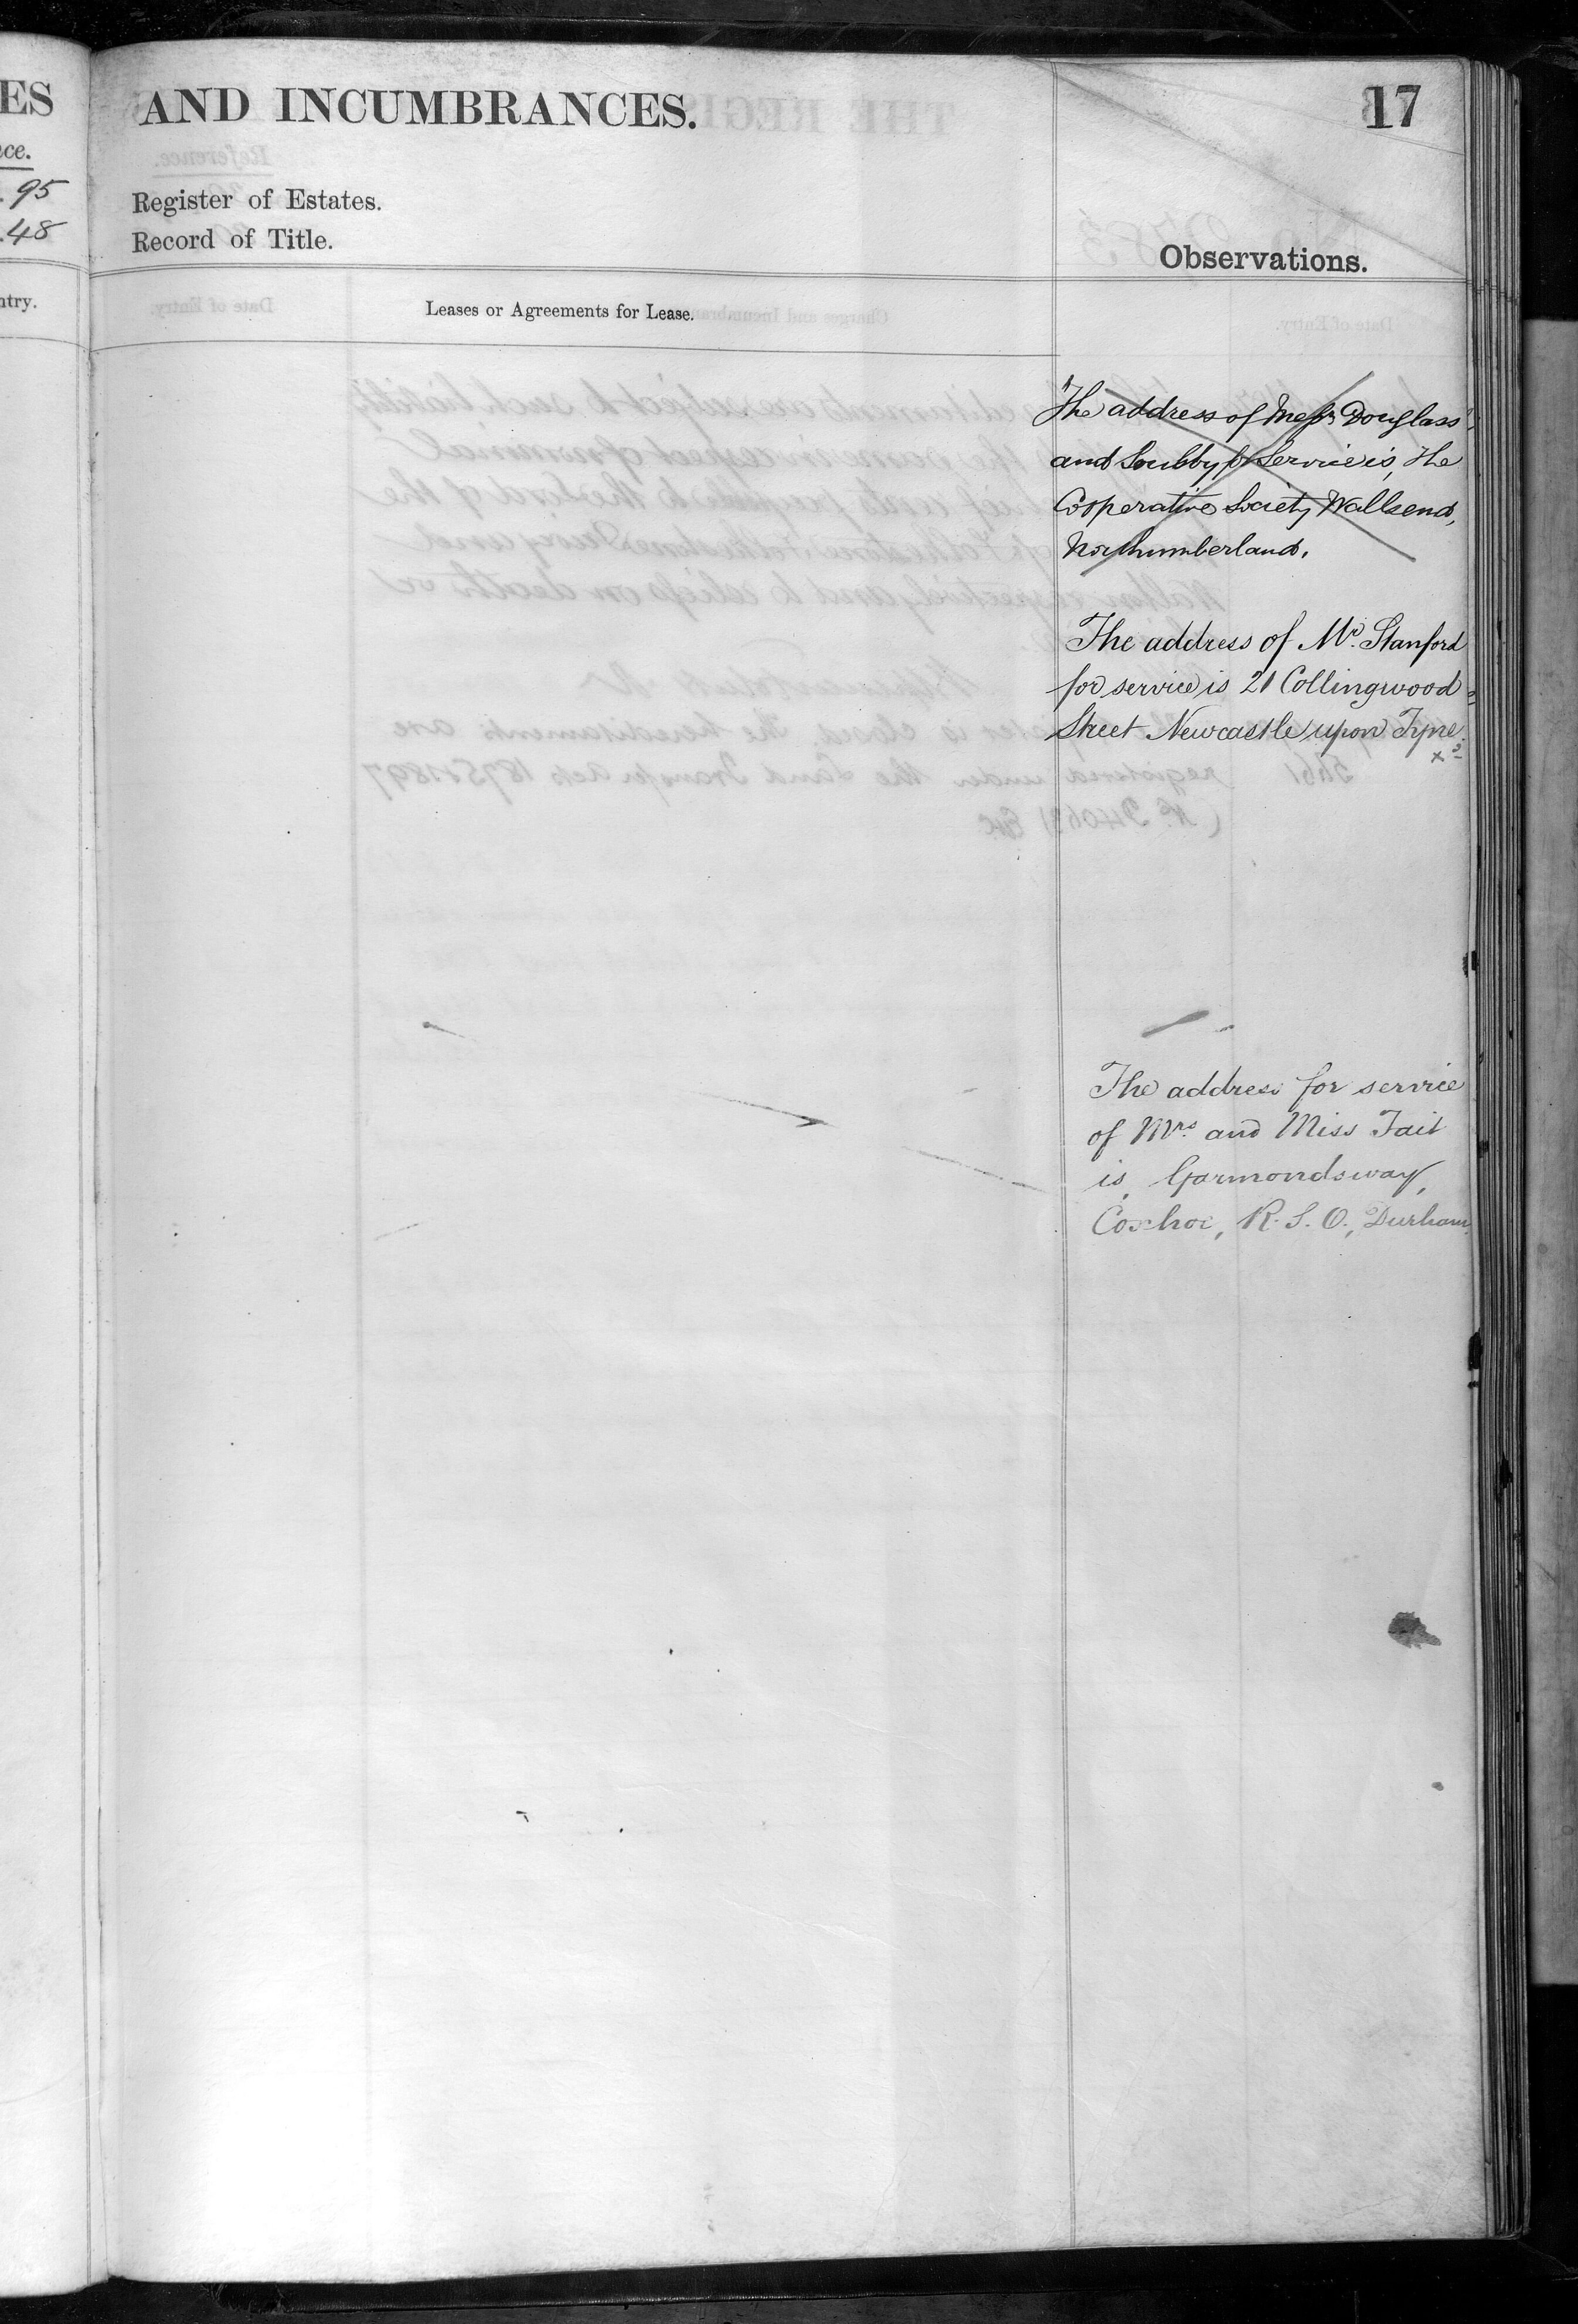 ES
nce.
. 95
. 48
ntry.
AND INCUMBRANCES.
17
Register of Estates.
Record of Title.
Observations.
Leases or Agreements for Lease.
The address of Messrs Douglass
and for Service is, The
Cooperative Society Wallsend,
Northumberland.
The address of Mr. Stanford
for service is 21 Collingwood
Street Newcastle upon Tyne.
The address for service
of Mrs. and Miss Tait
is, Garmondsway,
Coxhoe, R. S. O., Durham.